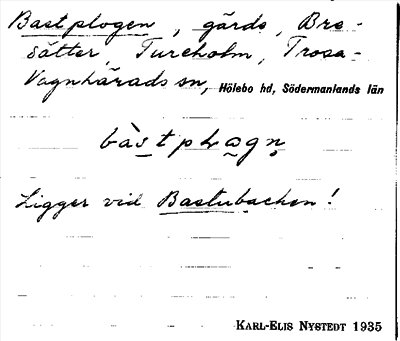 Bastplogen, gärde, Bre-
sätter, Tureholm, Trosa-
Vagnhärads sn, Hölebo hd, Södermanlands län
Ligger vid Bastubacken!
KARL-ELIS NYSTEDT 1935